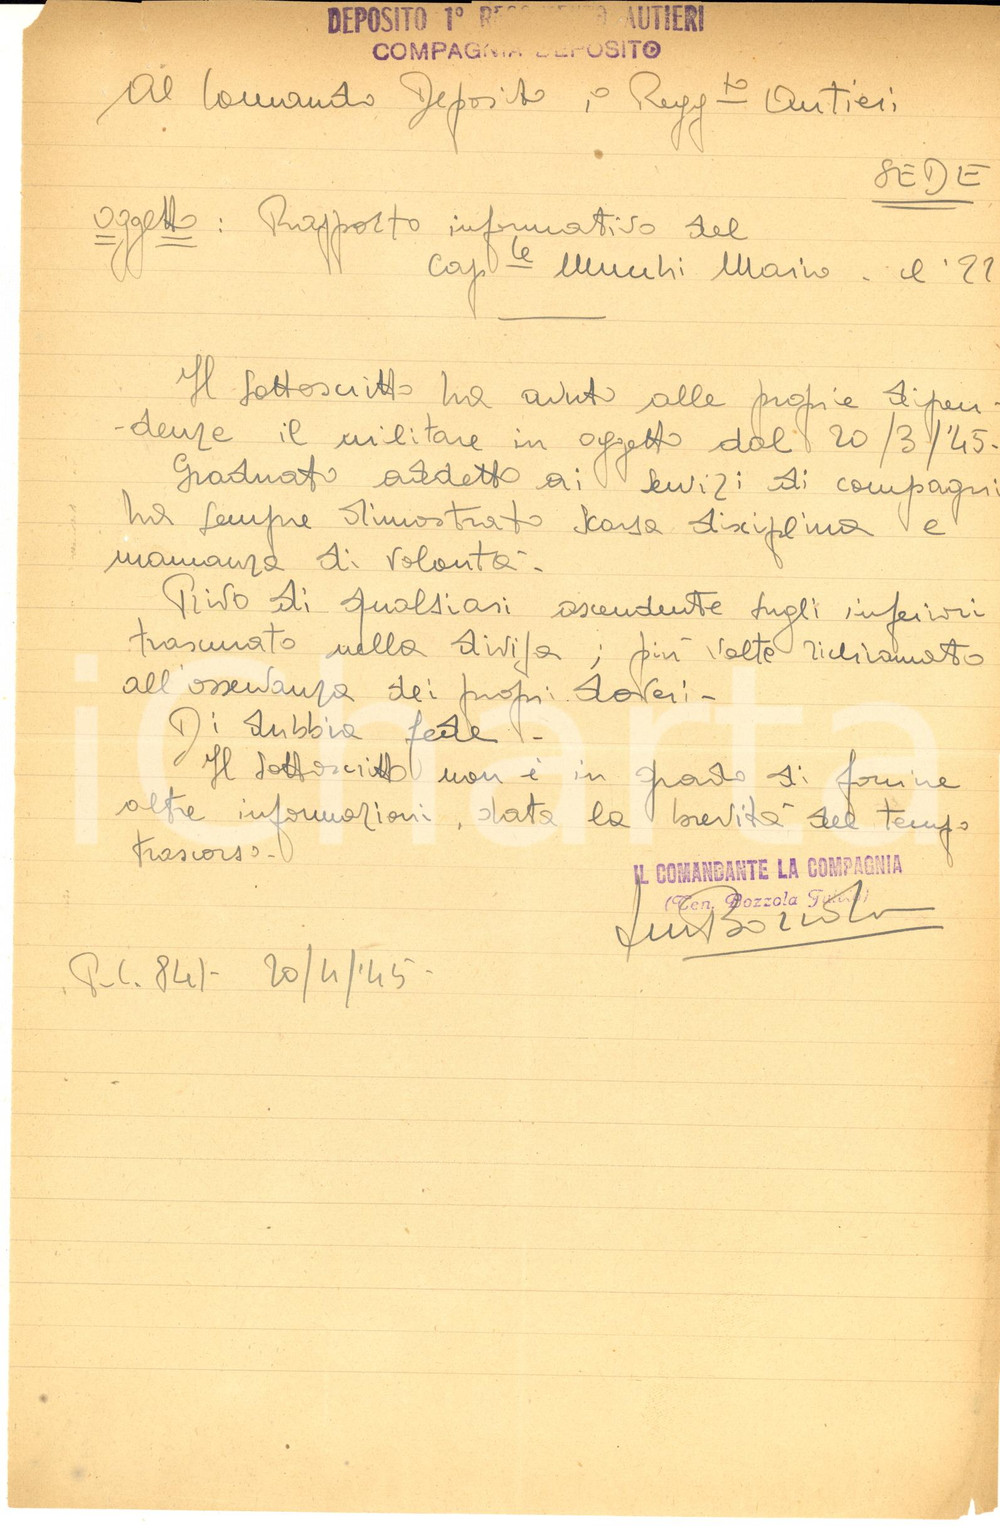 DEPOSITO 1° REGGIMENTO AUTIERI
COMPAGNIA DEPOSITO
Al Comando Deposito 1° Regg.to Autieri
SEDE
Oggetto: Rapporto informativo del
Cap.le Mucchi Mario. cl '22
Il sottoscritto ha avuto alle proprie dipen-
-denze il militare in oggetto dal 20/3/'45-
Graduato addetto ai servizi di compagni
ha sempre dimostrato scarsa disciplina e
mancanza di volontà-
Privo di qualsiasi ascendente sugli inferiori
trascurato nella divisa; più volte richiamato
all'osservanza dei propri doveri-
Di dubbia fede-
Il sottoscritto non è in grado di fornire
altre informazioni, data la brevità del tempo
trascorso-
IL COMANDANTE LA COMPAGNIA
(Ten. Bozzola
Bozzola
P.C. 841- 20/4/'45-
iCharta